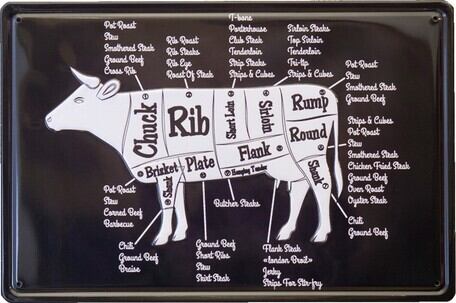 T-bone
Porterhouse
Club Steak
Tenderloin
Strip Steaks
Strips & Cubes
Sirloin Steaks
Top Sirloin
Tenderloin
Tri-tip
Strips & Cubes
Pot Roast
Stew
Smothered Steak
Ground Beef
Cross Rib
Rib Roast
Rib Steaks
Rib Eye
Roast Of Steak
Pot Roast
Stew
Smothered Steak
Ground Beef
Chuck
Rib
Short Loin
Sirloin
Rump
Round
Flank
Brisket
Plate
Shank
Hanging Tender
Shank
Strips & Cubes
Pot Roast
Stew
Smothered Steak
Chicken Fried Steak
Ground Beef
Oven Roast
Oyster Steak
Pot Roast
Stew
Corned Beef
Barbecue
Butcher Steaks
Chili
Ground Beef
Chili
Ground Beef
Braise
Ground Beef
Short Ribs
Stew
Skirt Steak
Flank Steak
«London Broil»
Jerky
Strips For Stir-fry